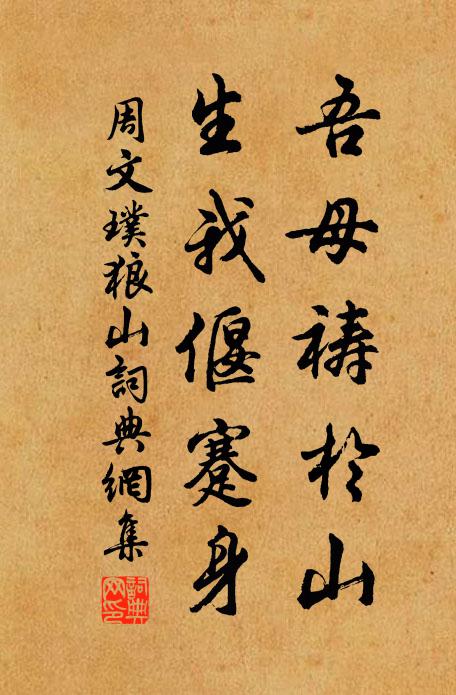 吾母禱於山
生我偃蹇身
周文璞狼山詞典網集
詞典網印